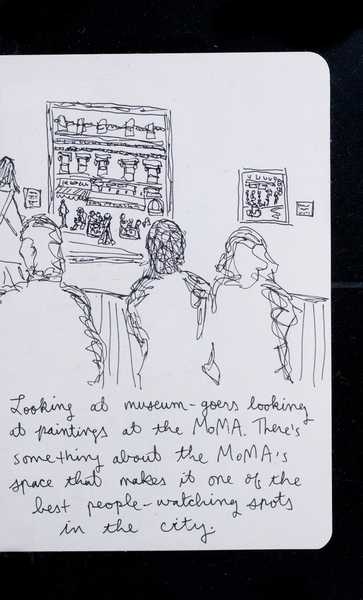 Looking at museum-goers looking
at paintings at the MoMA. There's
something about the MoMA's
space that makes it one of the
best people-watching spots
in the city.